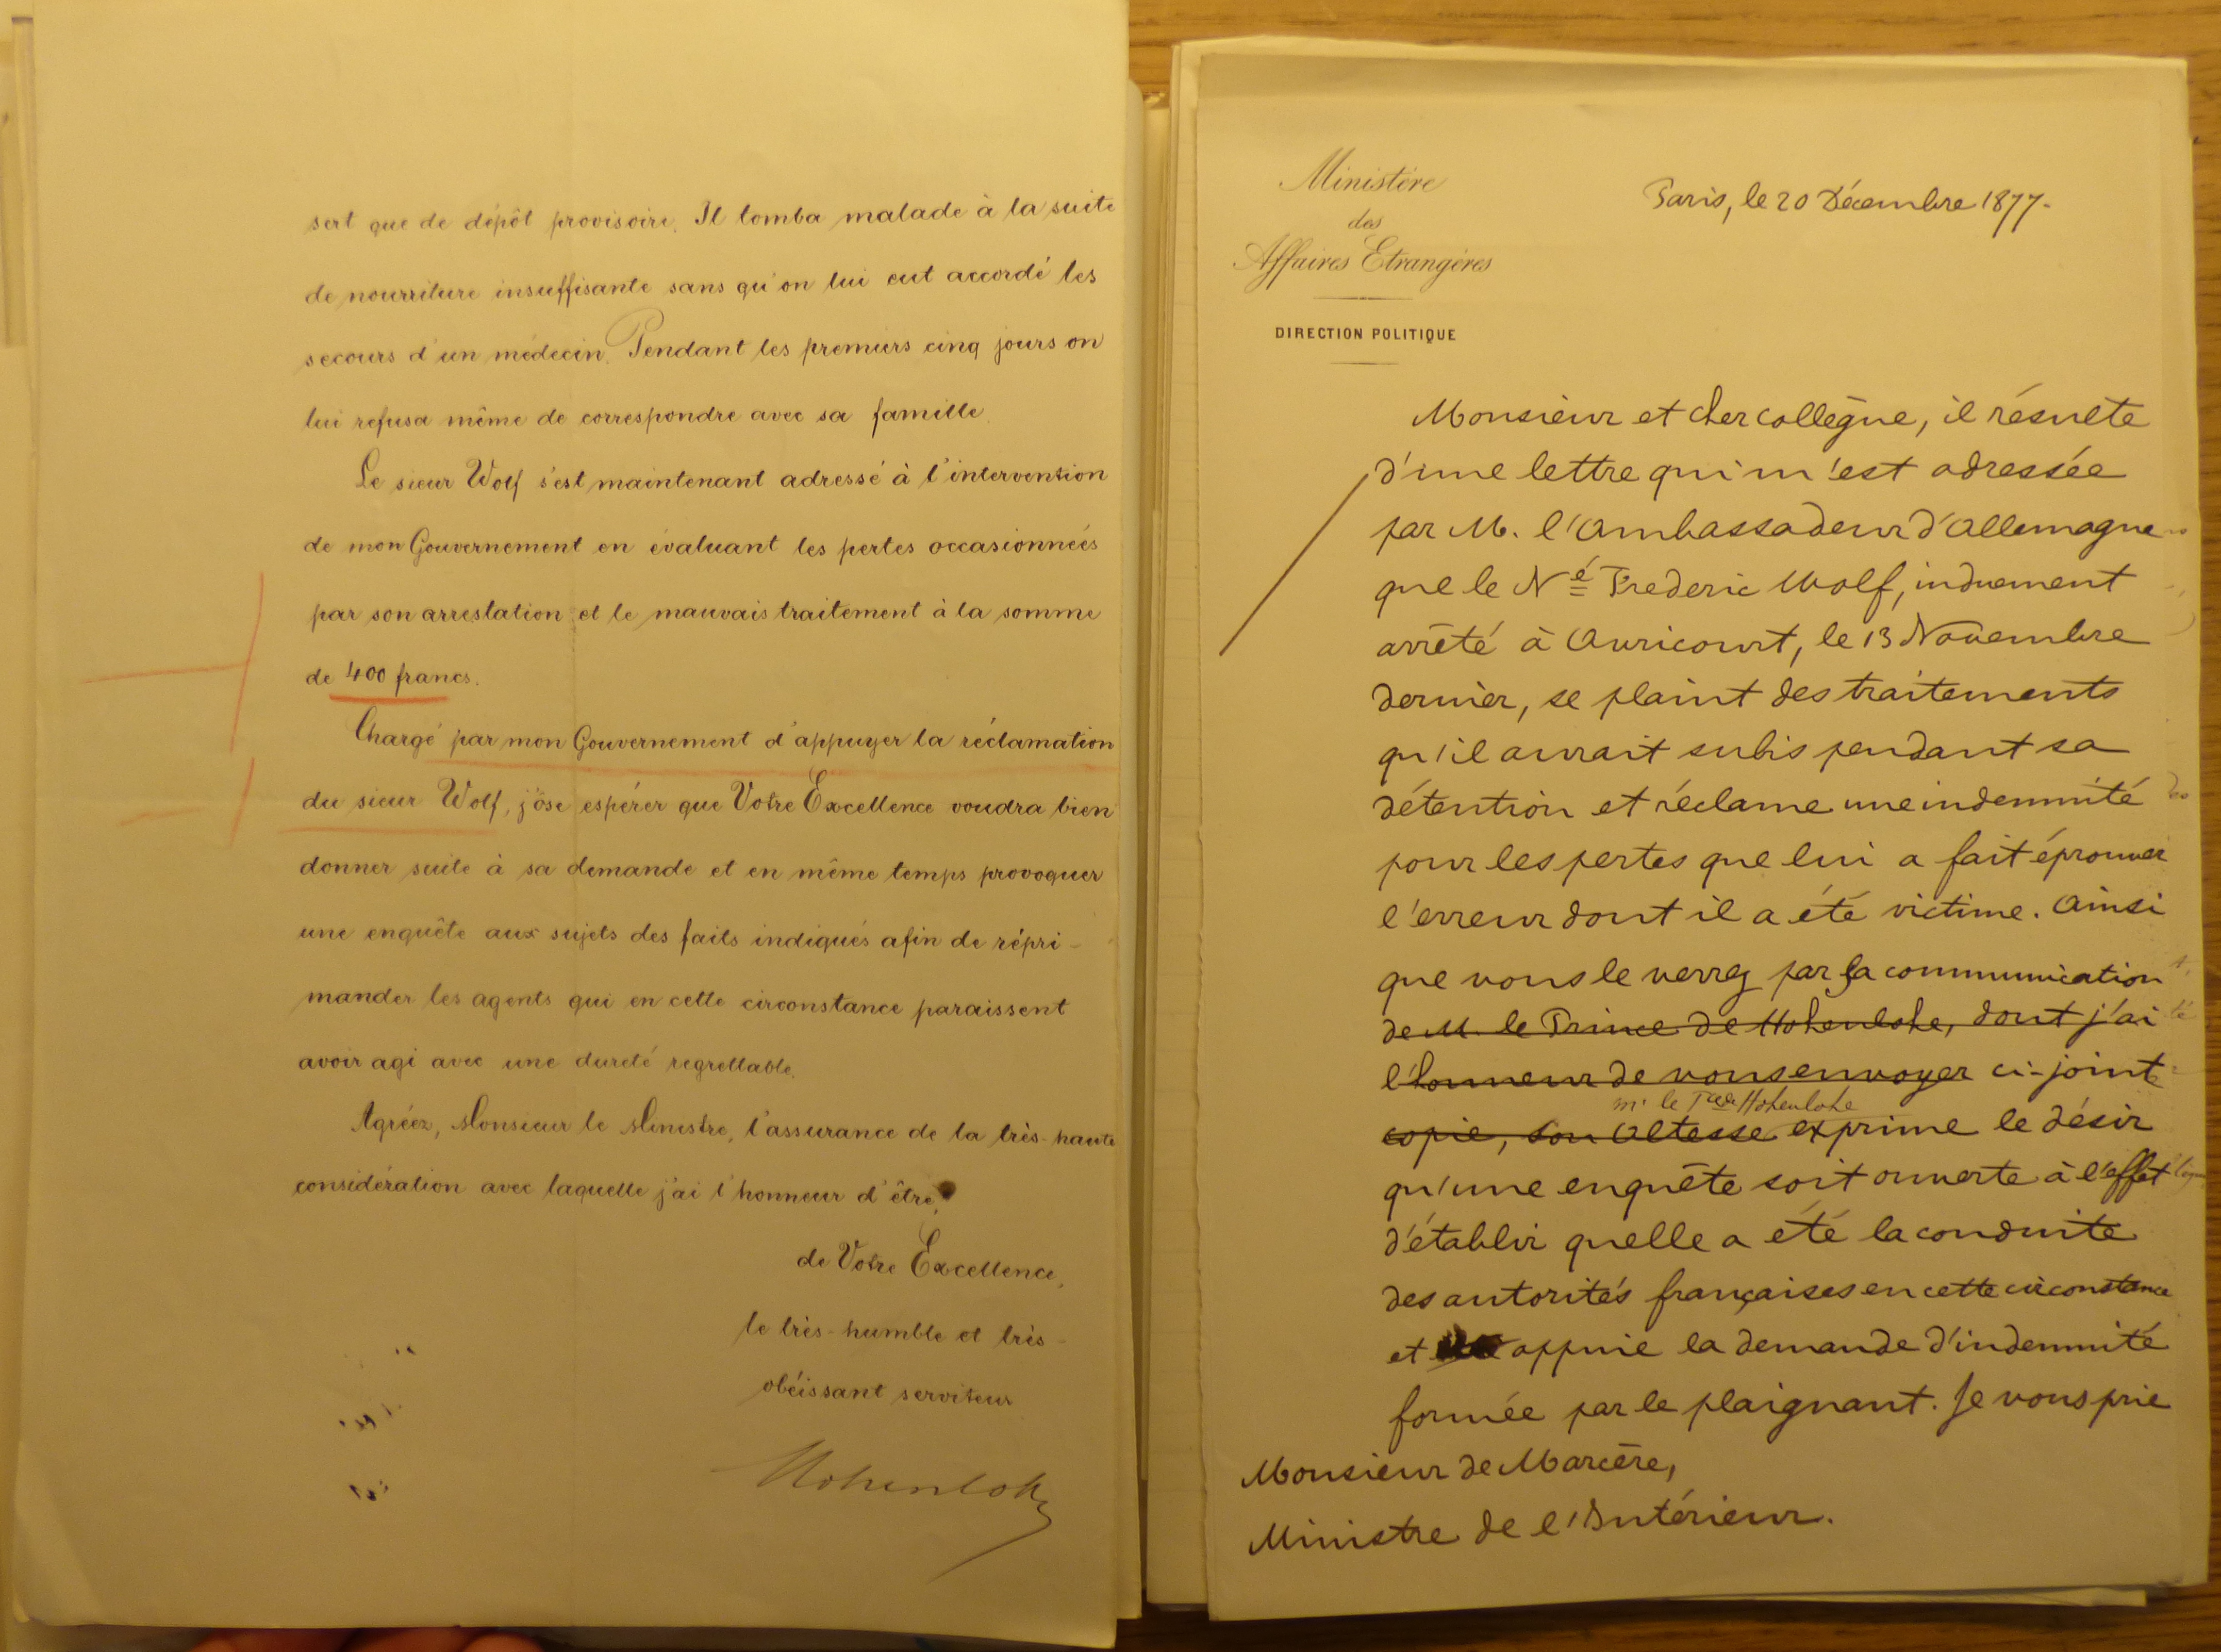 sert que de dépôt provisoire. Il tomba malade à la suite
de nourriture insuffisante sans qu'on lui eut accordé les
secours d'un médecin. Pendant les premiers cinq jours on
lui refusa même de correspondre avec sa famille.
Le sieur Wolf s'est maintenant adressé à l'intervention
de mon Gouvernement en évaluant les pertes occasionnées
par son arrestation et le mauvais traitement à la somme
de 400 francs.
Chargé par mon Gouvernement d'appuyer la réclamation
du sieur Wolf, j'ose espérer que Votre Excellence voudra bien
donner suite à sa demande et en même temps provoquer
une enquête aux sujets des faits indiqués afin de répri-
mander les agents qui en cette circonstance paraissent
avoir agi avec une dureté regrettable.
Agréez, Monsieur le Ministre, l'assurance de la très-haute
considération avec laquelle j'ai l'honneur d'être
de Votre Excellence,
le très-humble et très-
obéissant serviteur
Hohenlohe
Ministère
des
Affaires Etrangères
DIRECTION POLITIQUE
Paris, le 20 Décembre 1877.
Monsieur et cher collègue, il résulte
d'une lettre qui m'est adressée
par M. l'Ambassadeur d'Allemagne
que le Né Frederic Wolf, induement
arrêté à Avricourt, le 13 Novembre
dernier, se plaint des traitements
qu'il aurait subis pendant sa
détention et réclame une indemnité
pour les pertes que lui a fait éprouver
l'erreur dont il a été victime. Ainsi
que vous le verrez par la communication
de M. le Prince de Hohenlohe, dont j'ai
l'honneur de vous envoyer ci-joint
m. le Pce de Hohenlohe
copie, Son Altesse exprime le désir
qu'une enquête soit ouverte à l'effet
d'établir quelle a été la conduite
des autorités françaises en cette circonstance
et appuie la demande d'indemnité
formée par le plaignant. Je vous prie
Monsieur de Marcère,
Ministre de l'Intérieur.